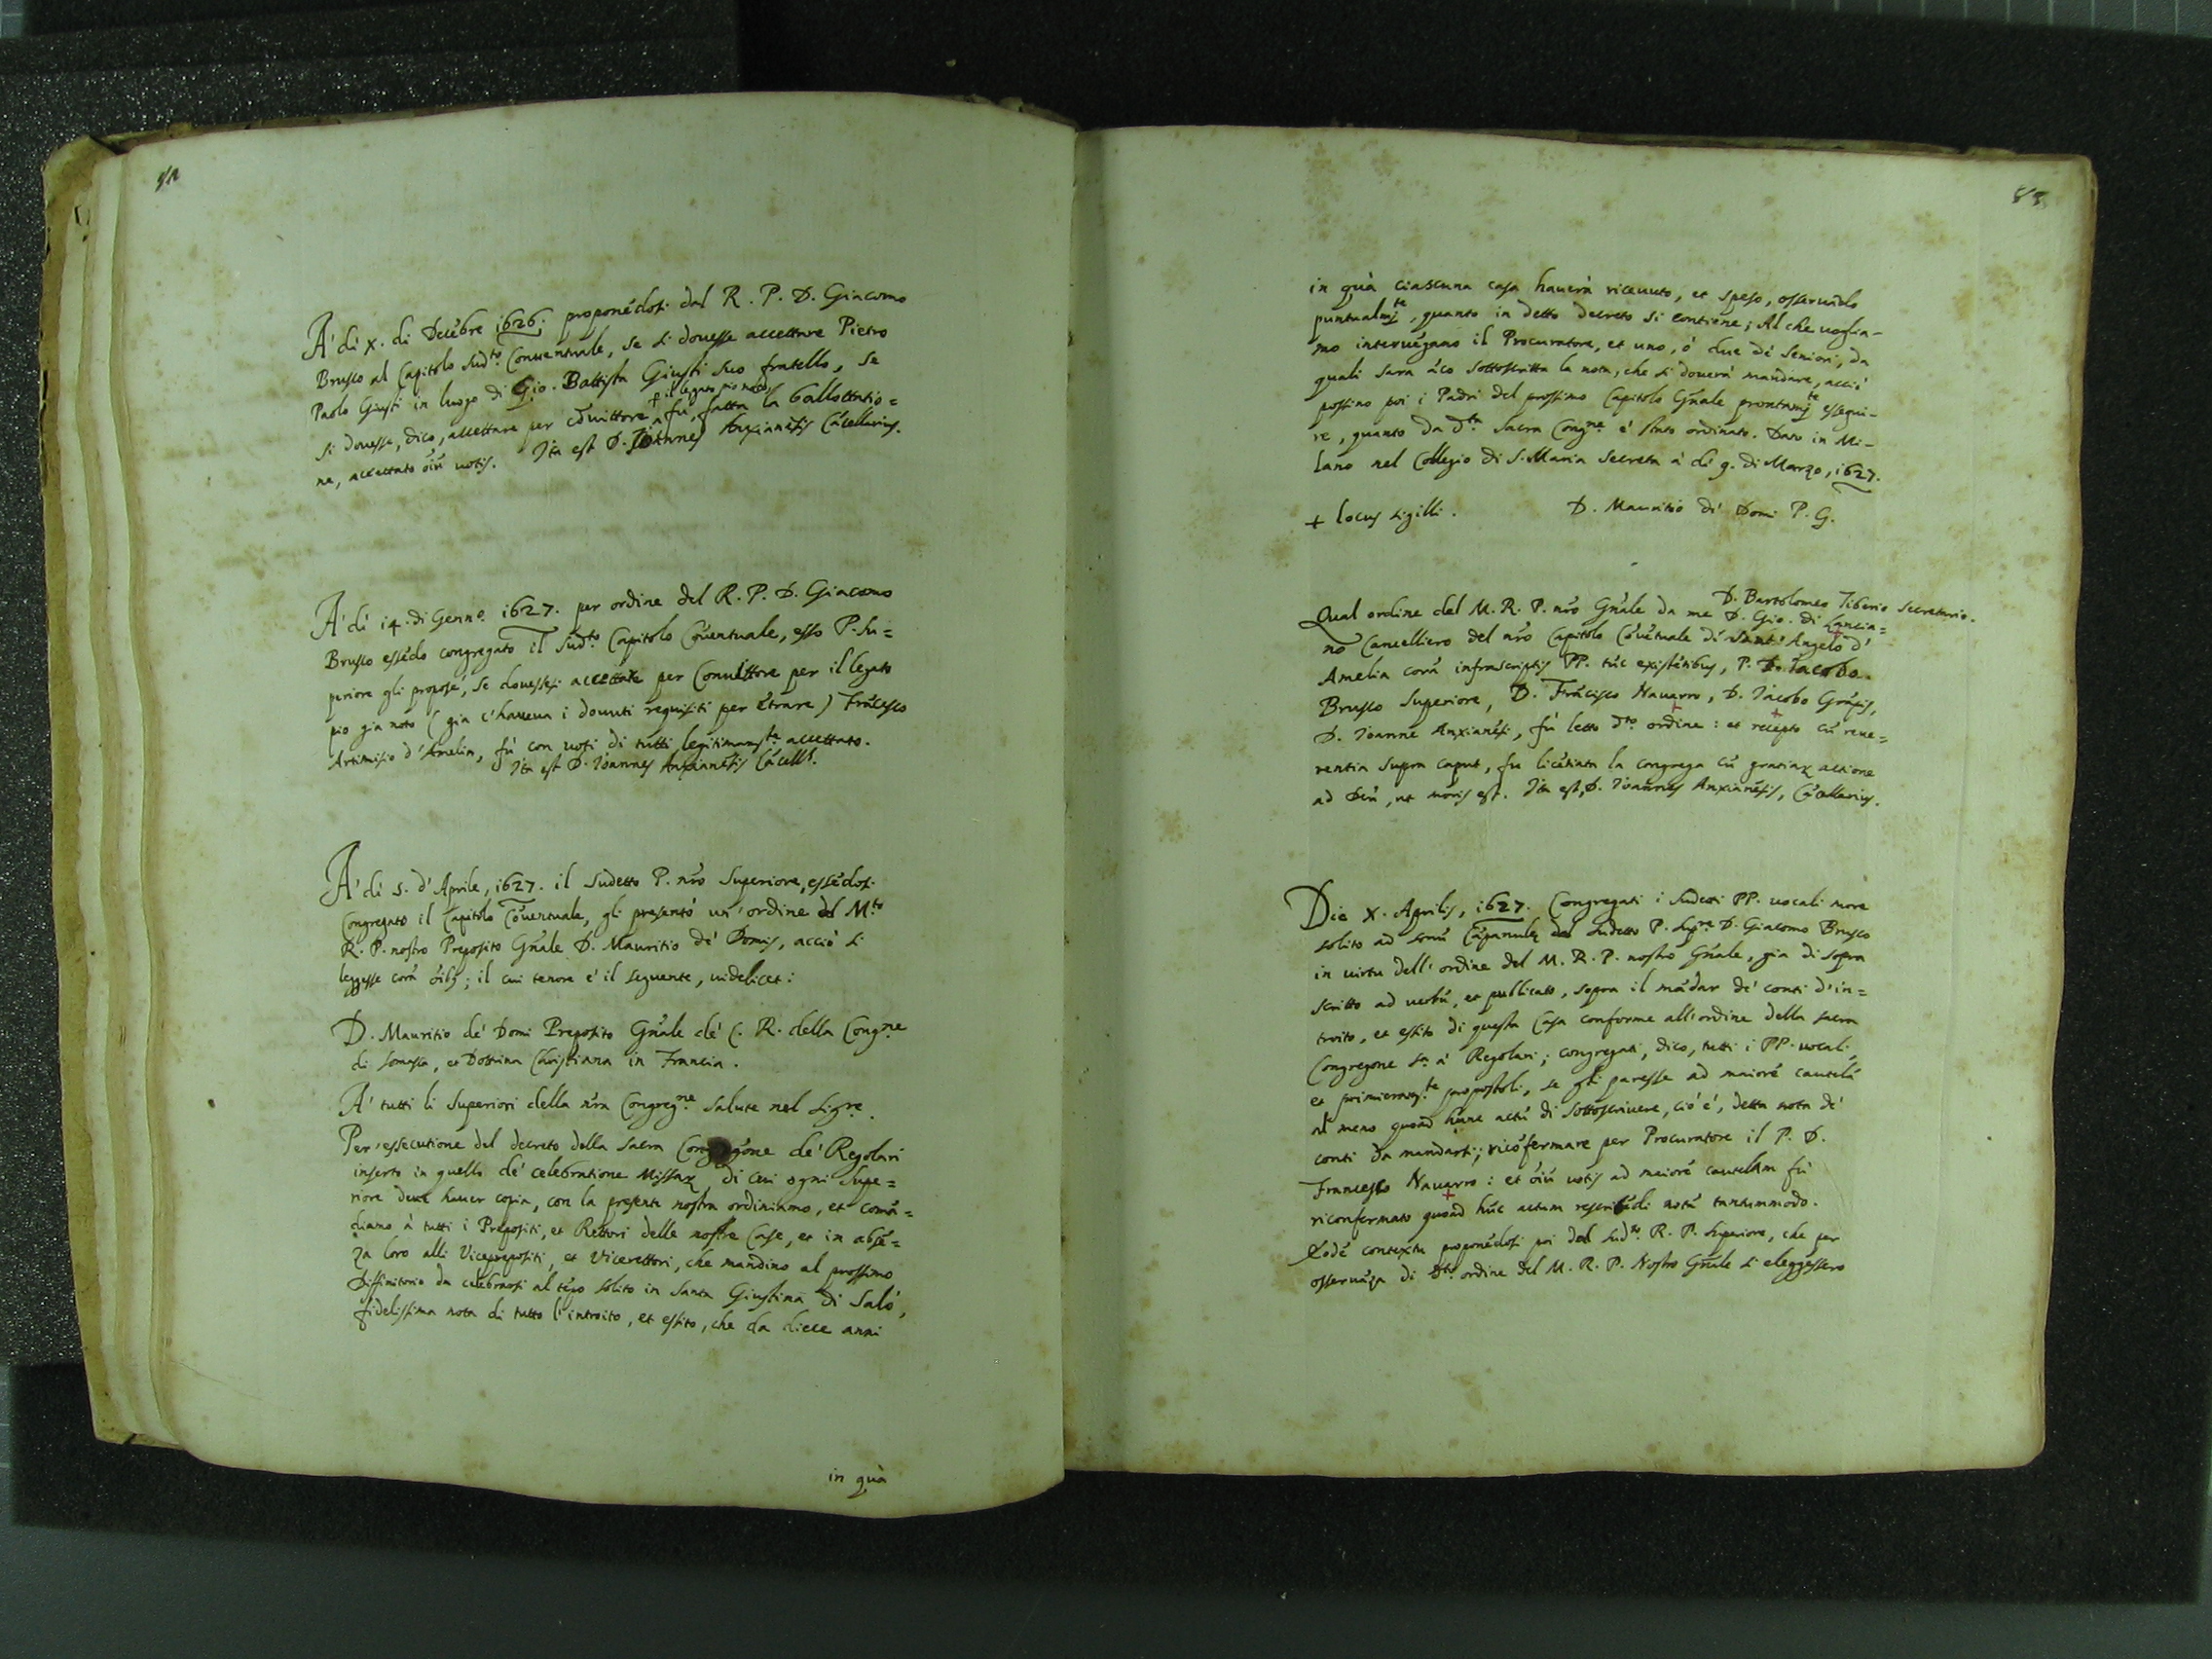 A' di x. di Decẽbre 1626. proponẽdosi dal R. P. D. Giacomo
Brusco al Capitolo sudto. Conuentuale, se si douesse accettare Pietro
Paolo Giusti in luogo di Gio. Battista Giusti suo fratello, se
+ il legato pio
si douesse, dico, accettare per cõuittore, fu fatta la ballottatio=
ne, accettato õiũ uotis. Ita est D. Joannes Anxianẽsis Cãcellarius.
A' di 14. di Genno. 1627. per ordine del R. P. D. Giacomo
Brusco essẽdo congregato il sudto. Capitolo Cõuentuale, esso P. Su=
periore gli propose, se douessesi accettare per Conuittore per il legato
pio gia noto (gia c'haueua i douuti requisiti per ẽtrare) Frãcesco
Artimisio d'Amelia, fù con uoti di tutti legitimamte. accettato.
Ita est D. Joannes Anxianẽsis Cãcells.
A' di 5. d'Aprile, 1627. il sudetto P. nr̃o Superiore, essẽdosi
Congregato il Capitolo Cõuentuale, gli presentò un'ordine del Mto.
R. P. nostro Preposito Gñale D. Mauritio de' Domis, acciò si
leggesse corã õibs; il cui tenore è il seguente, uidelicet:
D. Mauritio de' Domi Preposito Gñale de' C. R. della Congne.
di Somasca, et Dottrina Christiana in Francia.
A' tutti li Superiori della nr̃a Congregne. salute nel Sigre.
Per essecutione del decreto della sacra Congregõne de' Regolari
inserto in quello de' celebratione Missarꝫ, di cui ogni Supe=
riore deue hauer copia, con la presente nostra ordiniamo, et comã=
diamo à tutti i Prepositi, et Rettori delle nostre Case, et in absẽ=
za loro alli Viceprepositi, et Vicerettori, che mandino al prossimo
Diffinitorio da celebrarsi al tẽpo solito in Santa Giustina di Salò,
fidelissima nota di tutto l'introito, et essito, che da diece anni
in quà
in quà ciascuna casa hauerà riceuuto, et speso, osseruãdo
puntualmte., quanto in detto decreto si contiene; Al che uoglia-
mo interuẽgano il Procuratore, et uno, ò due de' Seniori, da
quali sara ãco sottoscritta la nota, che si douerà mandare, acciò
possino poi i Padri del prossimo Capitolo Gñale prontamte. essegui-
re, quanto da dta. sacra Congne. è stato ordinato. Dato in Mi-
lano nel Collegio di S. Maria Secreta à di 9. di Marzo, 1627.
+ locus sigilli. D. Mauritio de' Domi P. G.
D. Bartolomeo Tiberio Secretario.
Qual ordine del M. R. P. nr̃o Gñale da me D. Gio. di Lancia=
no Cancelliero del nr̃o Capitolo Cõuẽtuale di Sant'Angelo d'
Amelia corã infrascriptis PP. tũc existẽtibus, P. D. Iacobo
Brusco Superiore, D. Frãcisco Nauarro, D. Iacobo Grãsis,
D. Ioanne Anxianẽsi, fù letto dto. ordine: et recepto cũ reue=
rentia supra caput, fu licẽtiata la congrega cũ gratiarꝫ actione
ad Deũ, ut moris est. Ita est, D. Ioannes Anxianẽsis, Cãcellarius.
Die X. Aprilis, 1627. Congregati i sudetti PP. uocali more
solito ad sonũ Cãpanulę dal sudetto P. Supre. D. Giacomo Brusco
in uirtu dell'ordine del M. R. P. nostro Gñale, gia di sopra
scritto ad uerbũ, et publicato, sopra il mãdar de' conti d'in=
troito, et essito di questa Casa conforme all'ordine della sacra
Congregone sa. à Regolari; congregati, dico, tutti i PP. uocali,
et primieramte. propostoli, se gli paresse ad maiorẽ cautelã
al meno quoad hunc actũ di sottoscriuere, ciò è, detta nota de'
conti da mandarsi; ricõfermare per Procuratore il P. D.
Francesco Nauarro: et õiũ uotis ad maiorẽ cautelam fù
riconfermato quoad hũc actum rescribẽdi notã tantummodo.
Eodẽ contextu proponẽdosi poi dal sudto. R. P. Superiore, che per
osseruãza di dto. ordine del M. R. P. Nostro Gñale si eleggessero